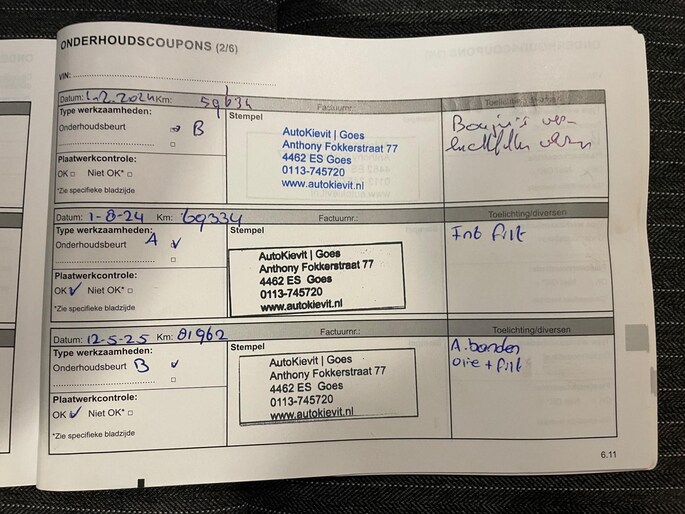 ONDERHOUDSCOUPONS (2/6)
VIN:
Datum: 1-2-2024 Km: 59634 Factuurnr.: Toelichting/diversen
Type werkzaamheden:
Onderhoudsbeurt B
Stempel
AutoKievit | Goes
Anthony Fokkerstraat 77
4462 ES Goes
0113-745720
www.autokievit.nl
Plaatwerkcontrole:
OK Niet OK*
*Zie specifieke bladzijde
Datum: 1-8-24 Km: 69334 Factuurnr.: Toelichting/diversen
Type werkzaamheden:
Onderhoudsbeurt A
Stempel
AutoKievit | Goes
Anthony Fokkerstraat 77
4462 ES Goes
0113-745720
www.autokievit.nl
Int filt
Plaatwerkcontrole:
OK Niet OK*
*Zie specifieke bladzijde
Datum: 12-5-25 Km: 81962 Factuurnr.: Toelichting/diversen
Type werkzaamheden:
Onderhoudsbeurt B
Stempel
AutoKievit | Goes
Anthony Fokkerstraat 77
4462 ES Goes
0113-745720
www.autokievit.nl
A.banden
olie + filt
Plaatwerkcontrole:
OK Niet OK*
*Zie specifieke bladzijde
6.11